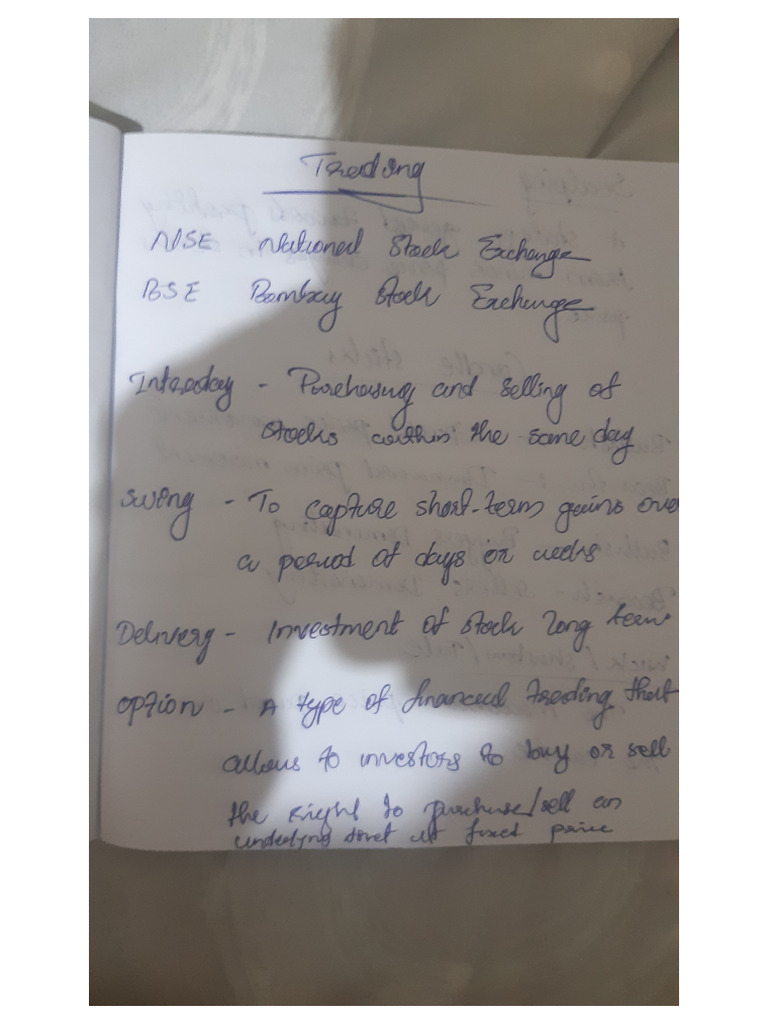 Trading
NSE National Stock Exchange
BSE Bombay Stock Exchange
Intraday - Purchasing and selling of
stocks within the same day
Swing - To capture short-term gains over
a period of days or weeks
Delivery - Investment of stock long term
Option - A type of financial trading that
allows to investors to buy or sell
the right to purchase/sell an
underlying at fixed price